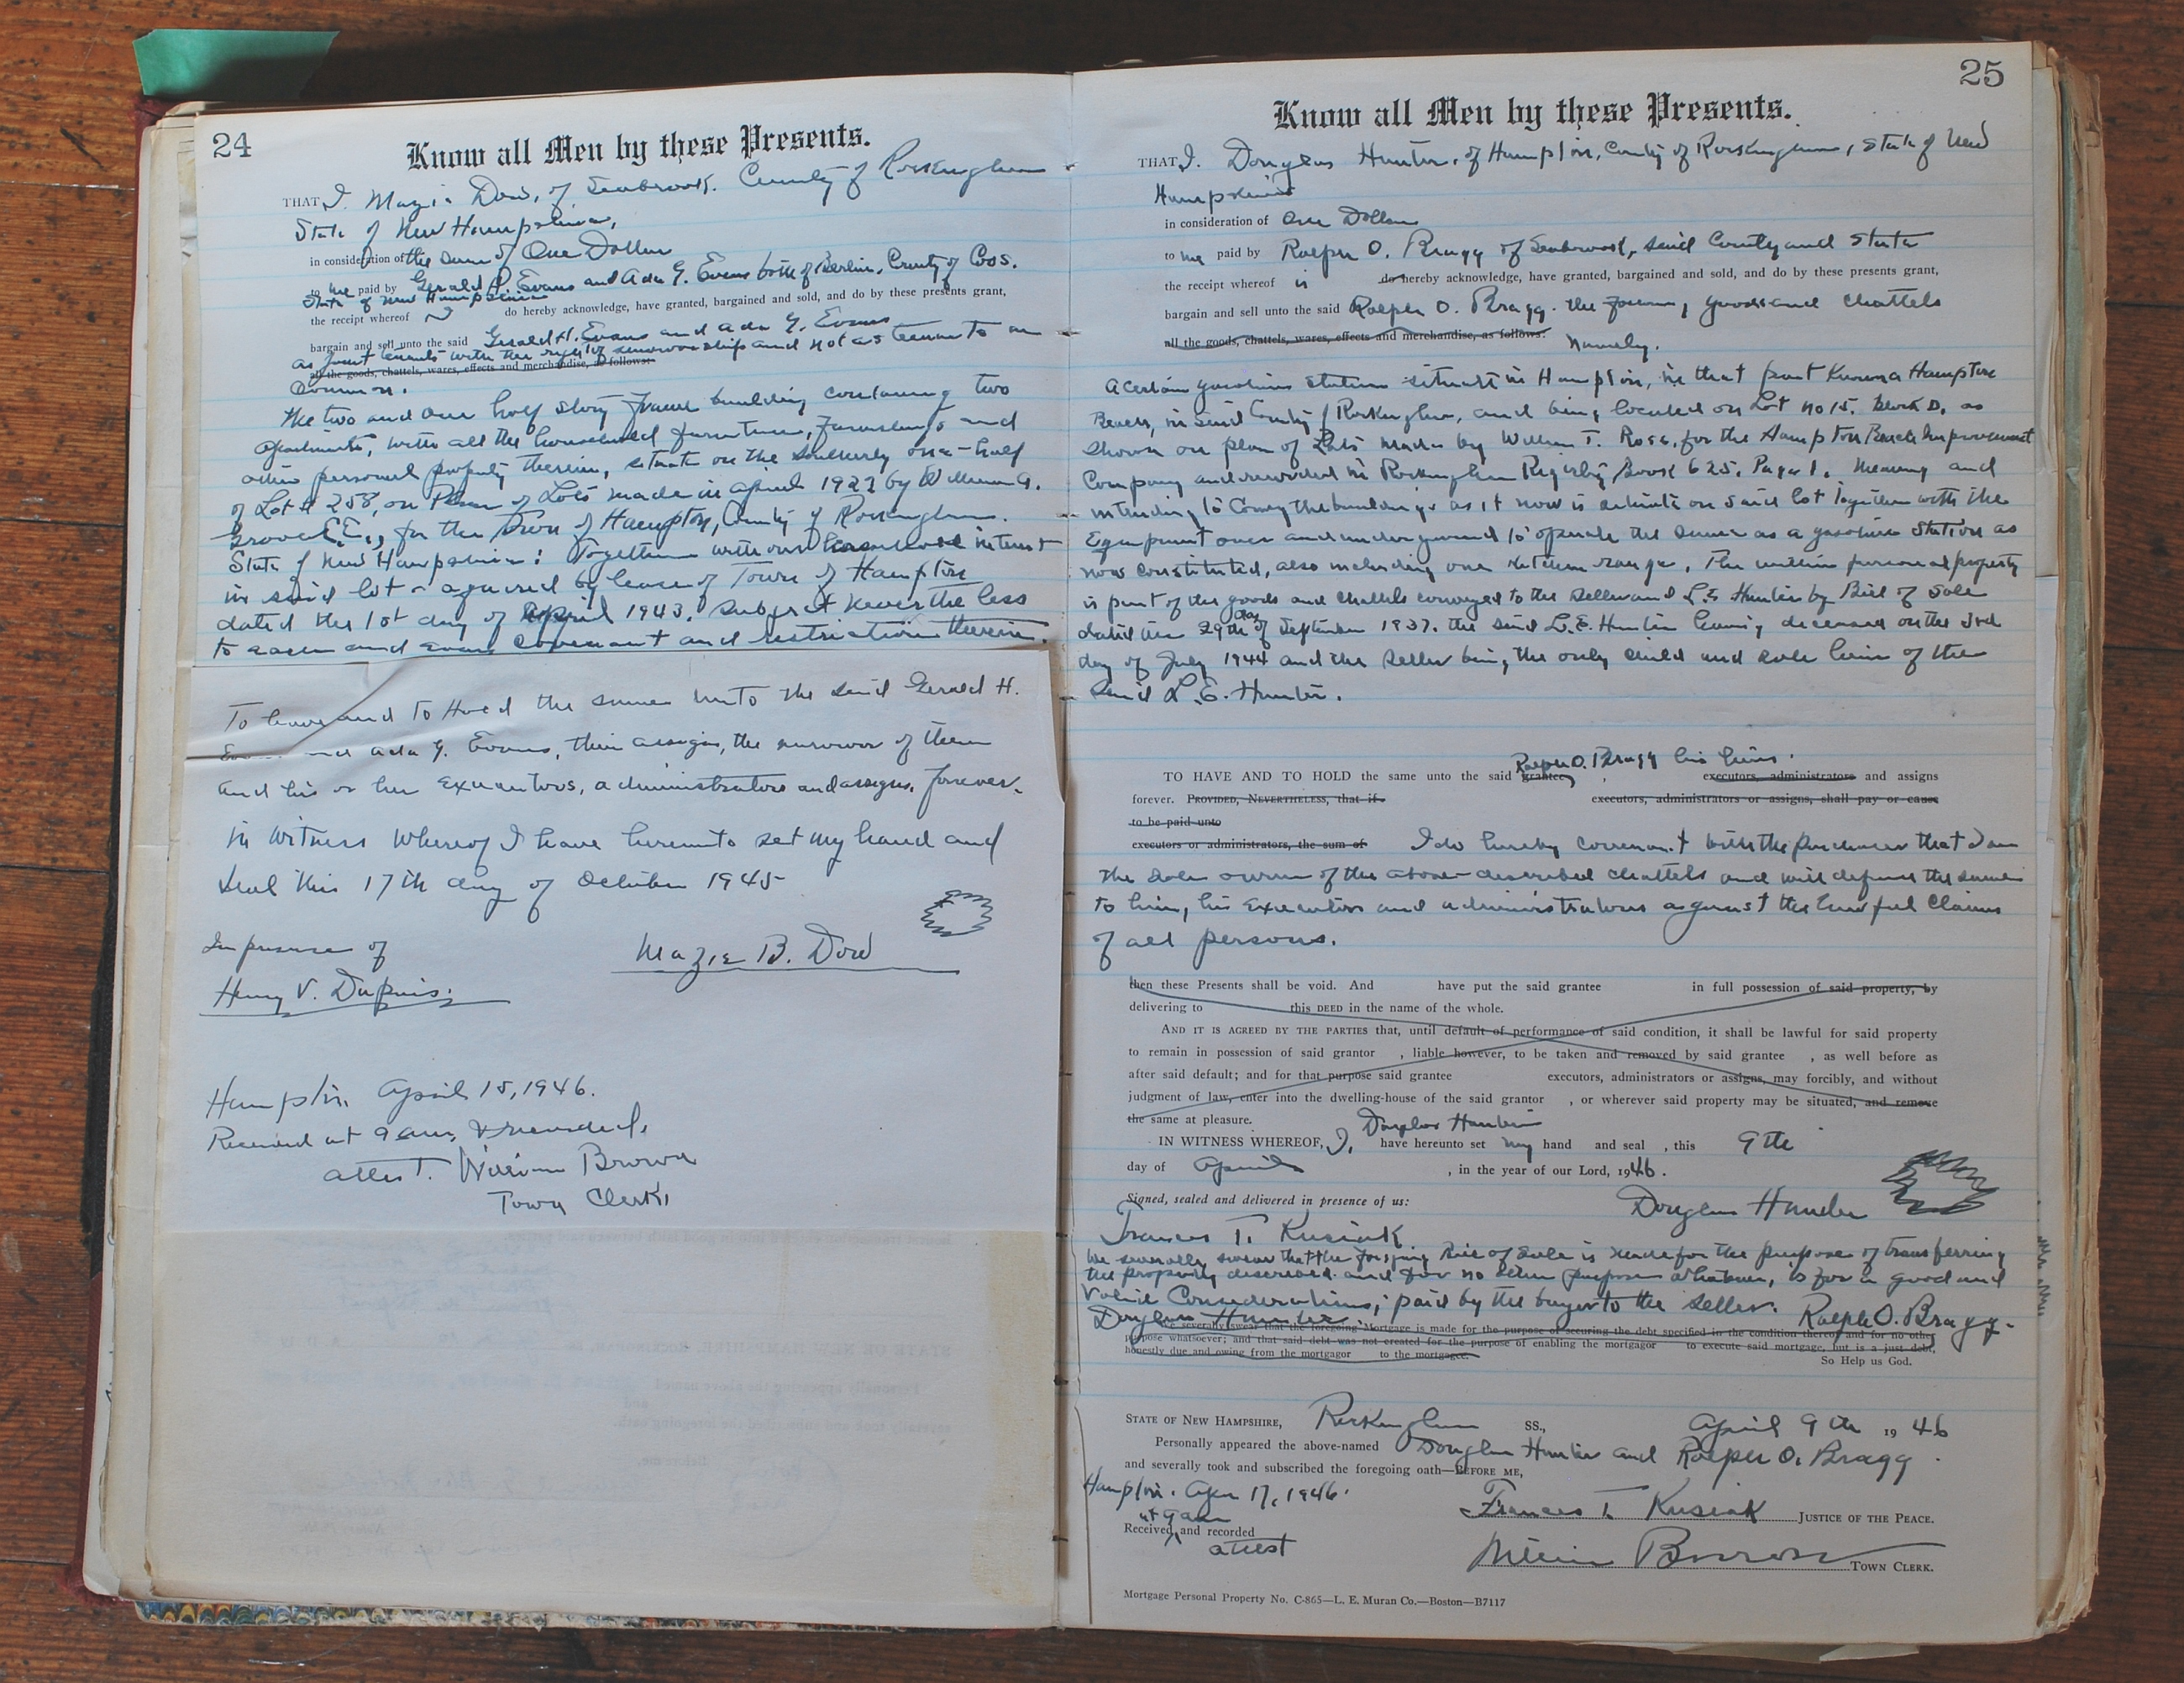 24
Know all Men by these Presents.
THAT I, Mazie Dow, of Seabrook, County of Rockingham
State of New Hampshire,
in consideration of the sum of One Dollar
to me paid by Gerald H. Evans and Ada G. Evans both of Berlin, County of Coos,
State of New Hampshire
the receipt whereof is do hereby acknowledge, have granted, bargained and sold, and do by these presents grant,
bargain and sell unto the said Gerald H. Evans and Ada G. Evans
as joint tenants with the right of survivorship and not as tenants in
all the goods, chattels, wares, effects and merchandise, as follows:
common.
The two and one half story frame building containing two
apartments, with all the household furniture, furnishings and
other personal property therein, situate on the southerly one-half
of Lot # 258, on Plan of Lots made in April 1927 by William A.
Grover C.E., for the Town of Hampton, County of Rockingham.
State of New Hampshire: Together with our leasehold interest
in said lot acquired by lease of Town of Hampton
dated the 1st day of April 1943. Subject never the less
to each and every covenant and restriction therein.
To have and to Hold the same unto the said Gerald H.
Evans and Ada G. Evans, their assigns, the survivor of them
and his or her Executors, administrators and assigns, forever.
In Witness Whereof I have hereunto set my hand and
seal this 17th day of October 1945
In presence of
Mazie B. Dow
Henry V. Dupuis.
Hampton, April 15, 1946.
Received at 9 am, & recorded,
attest. William Brown
Town Clerk,
25
Know all Men by these Presents.
THAT I, Douglas Hunter, of Hampton, County of Rockingham, State of New
Hampshire
in consideration of One Dollar
to me paid by Ralph O. Bragg of Seabrook, said County and State
the receipt whereof is do hereby acknowledge, have granted, bargained and sold, and do by these presents grant,
bargain and sell unto the said Ralph O. Bragg. the goods and chattels
all the goods, chattels, wares, effects and merchandise, as follows: Namely.
A certain gasoline station situate in Hampton, in that part known a Hampton
Beach, in said County of Rockingham, and being located on Lot No 15. Block D. as
shown on plan of Lots made by William T. Ross, for the Hampton Beach Improvement
Company and recorded in Rockingham Registry, Book 625, Page 1. Meaning and
intending to Convey the buildings as it now is situate on said lot together with the
Equipment over and underground to operate the same as a gasoline Station as
now constituted, also including one kitchen range. The within personal property
is part of the goods and chattels conveyed to the seller and L.E. Hunter by Bill of Sale
dated the 29th day of September 1937. the said L.E. Hunter having deceased on the 3rd
day of July 1944 and the seller being the only child and sole heir of the
said L.E. Hunter.
Ralph O. Bragg his heirs.
TO HAVE AND TO HOLD the same unto the said grantee, executors, administrators and assigns
forever. PROVIDED, NEVERTHELESS, that if executors, administrators or assigns, shall pay or cause
to be paid unto
executors or administrators, the sum of I do hereby covenant with the purchaser that I am
the sole owner of the above described chattels and will defend the same
to him, his Executors and administrators against the lawful claims
of all persons.
then these Presents shall be void. And have put the said grantee in full possession of said property, by
delivering to this DEED in the name of the whole.
AND IT IS AGREED BY THE PARTIES that, until default of performance of said condition, it shall be lawful for said property
to remain in possession of said grantor , liable however, to be taken and removed by said grantee , as well before as
after said default; and for that purpose said grantee executors, administrators or assigns, may forcibly, and without
judgment of law, enter into the dwelling-house of the said grantor , or wherever said property may be situated, and remove
the same at pleasure.
IN WITNESS WHEREOF, I, Douglas Hunter have hereunto set my hand and seal , this 9th
day of April , in the year of our Lord, 1946.
Signed, sealed and delivered in presence of us:
Douglas Hunter
Frances T. Kusiak
We severally swear that the foregoing Bill of Sale is made for the purpose of transferring
the property described and for no other purpose whatever, is for a good and
valid consideration; paid by the buyer to the seller. Ralph O. Bragg.
Douglas Hunter.
We severally swear that the foregoing Mortgage is made for the purpose of securing the debt specified in the condition thereof and for no other
purpose whatsoever; and that said debt was not created for the purpose of enabling the mortgagor to execute said mortgage, but is a just debt,
honestly due and owing from the mortgagor to the mortgagee.
So Help us God.
STATE OF NEW HAMPSHIRE, Rockingham SS., April 9th 1946
Personally appeared the above-named Douglas Hunter and Ralph O. Bragg
and severally took and subscribed the foregoing oath—BEFORE ME,
Hampton. Apr 17, 1946.
Frances T. Kusiak JUSTICE OF THE PEACE.
at 9 am
Received and recorded
attest William Brown TOWN CLERK.
Mortgage Personal Property No. C-865—L. E. Muran Co.—Boston—B7117